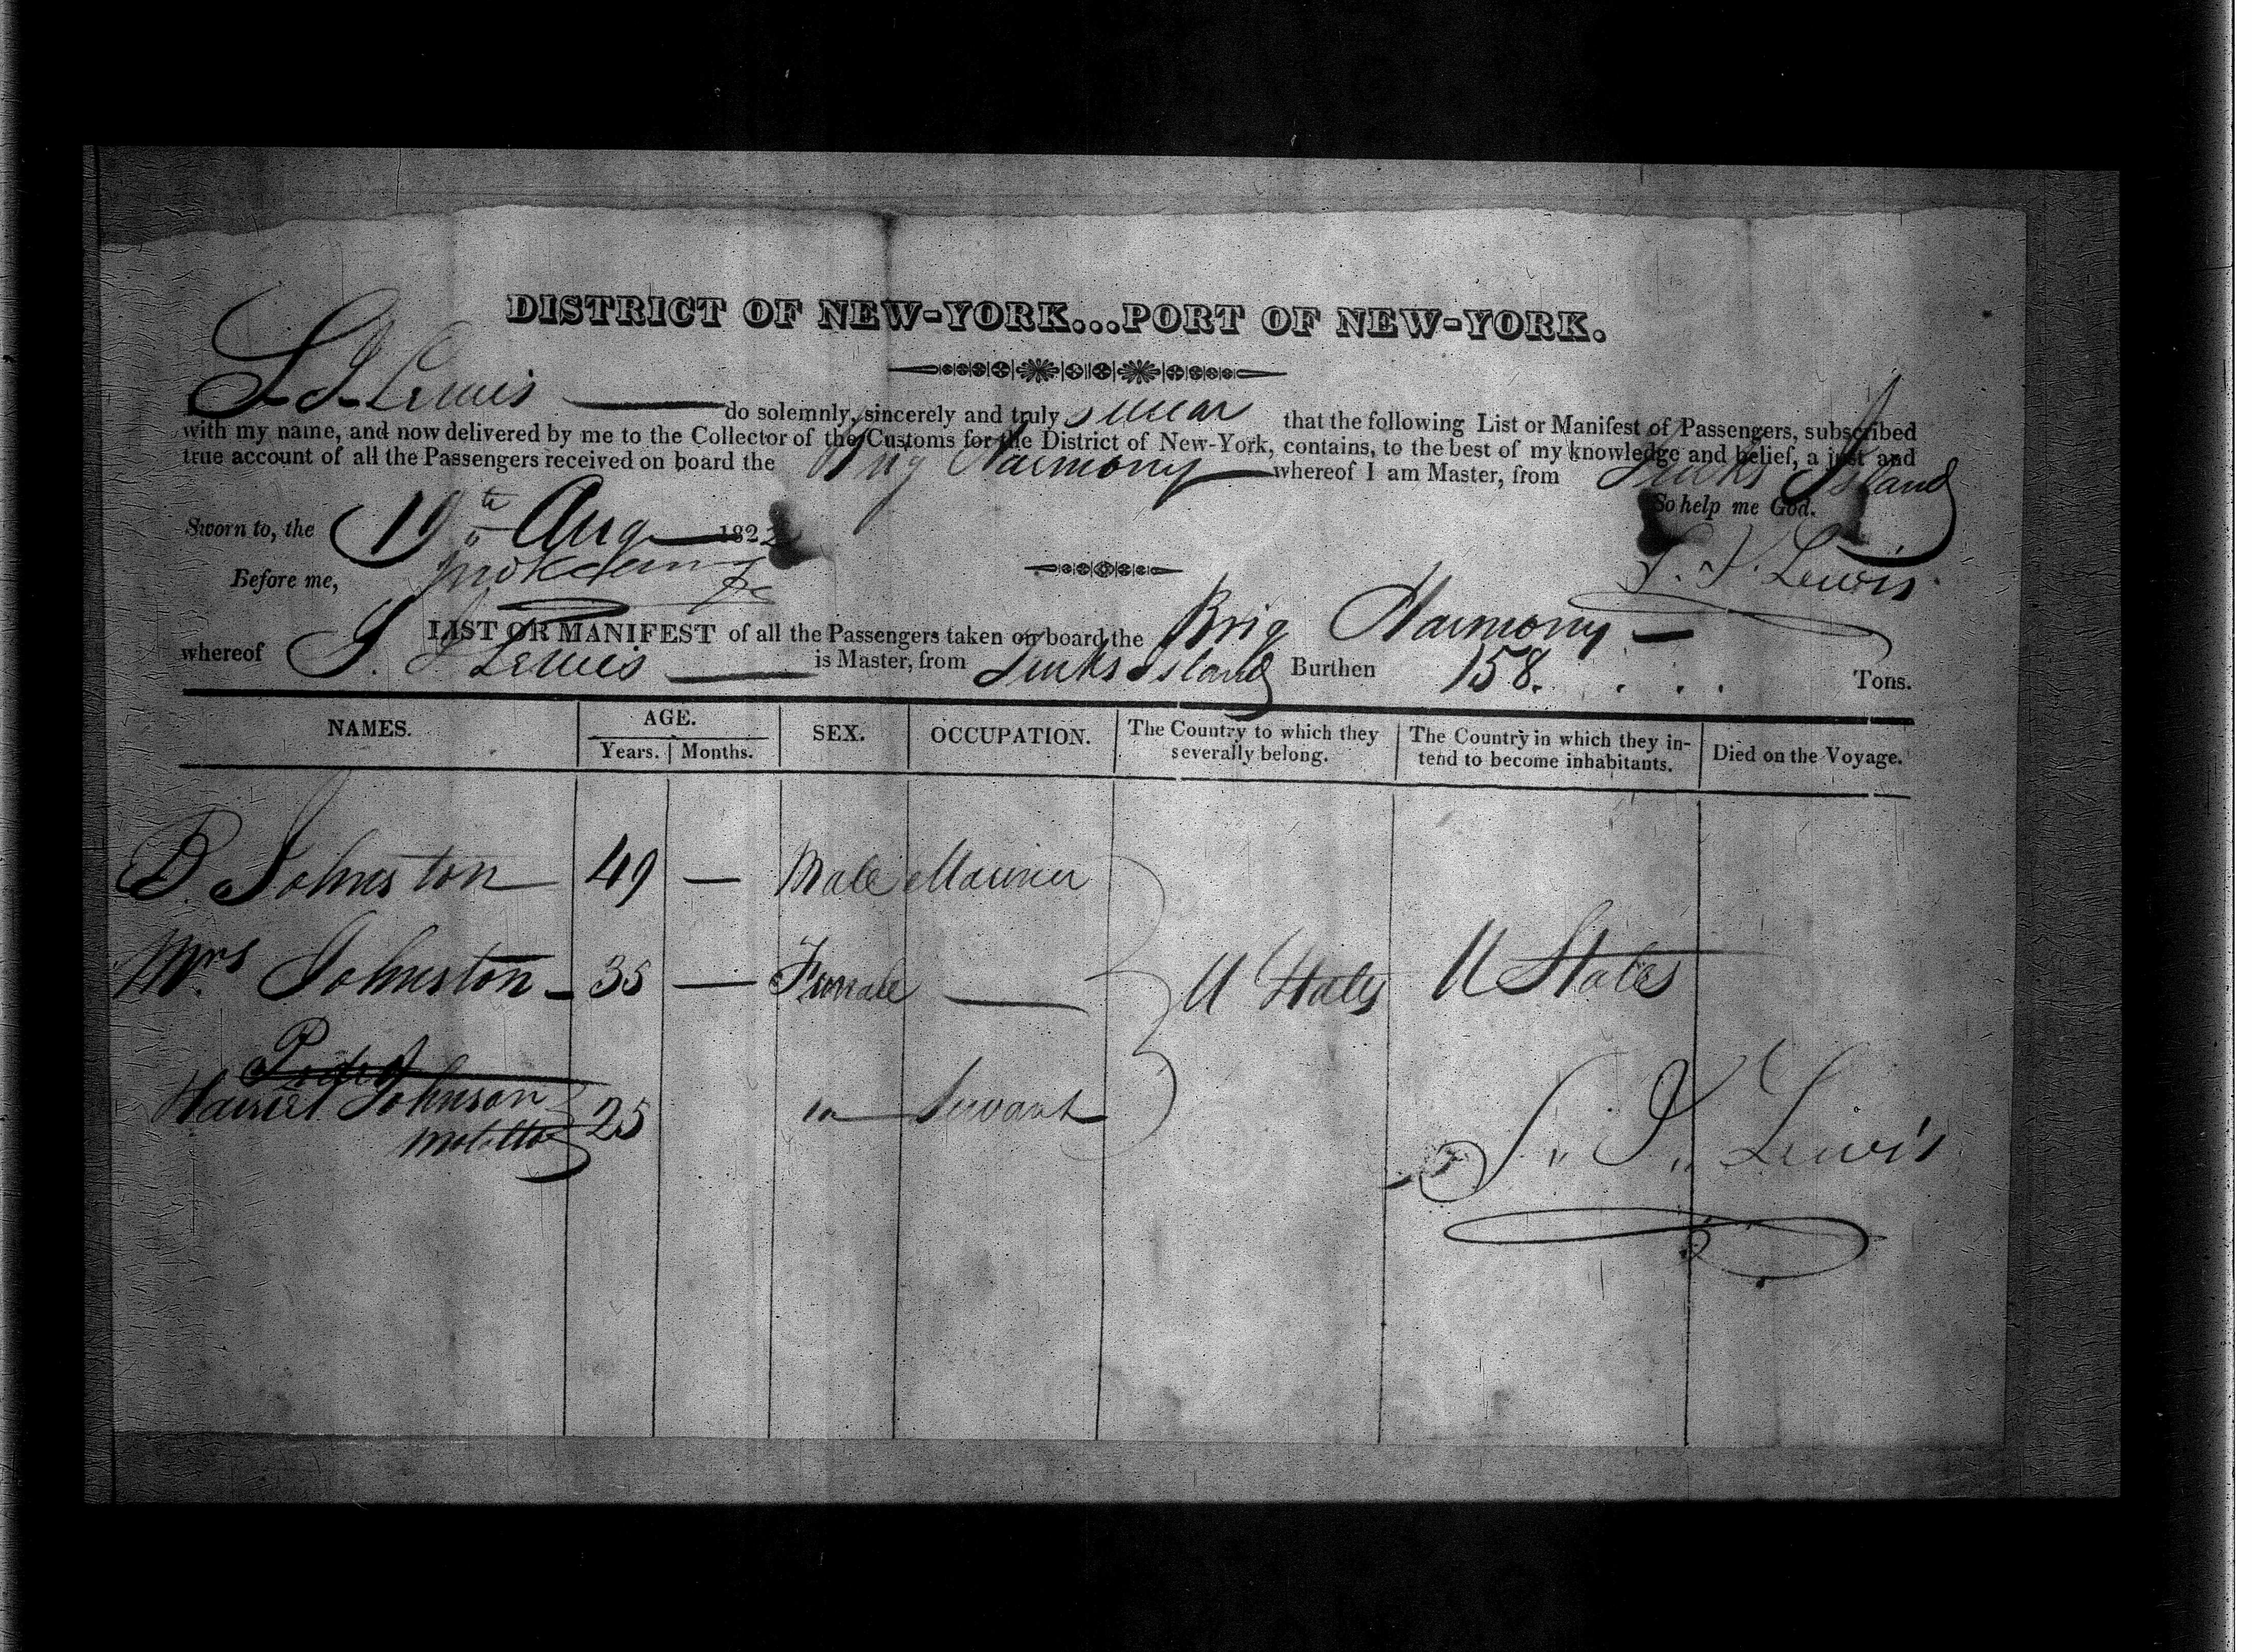 DISTRICT OF NEW-YORK...PORT OF NEW-YORK.
Lewis do solemnly, sincerely and truly swear that the following List or Manifest of Passengers, subscribed
with my name, and now delivered by me to the Collector of the Customs for the District of New-York, contains, to the best of my knowledge and belief, a just and
true account of all the Passengers received on board the Brig Harmony whereof I am Master, from Turks Island
So help me God.
Sworn to, the 19th Aug 1822
Lewis
Before me,
LIST OR MANIFEST of all the Passengers taken on board the Brig Harmony
whereof Lewis is Master, from Turks Island Burthen 158 Tons.
NAMES. AGE. SEX. OCCUPATION. The Country to which they severally belong. The Country in which they intend to become inhabitants. Died on the Voyage.
Years. Months.
Johnston 49 — Male Mariner
Mrs Johnston 35 — Female — U States U States
Harriet Johnson
25 Servant
Lewis